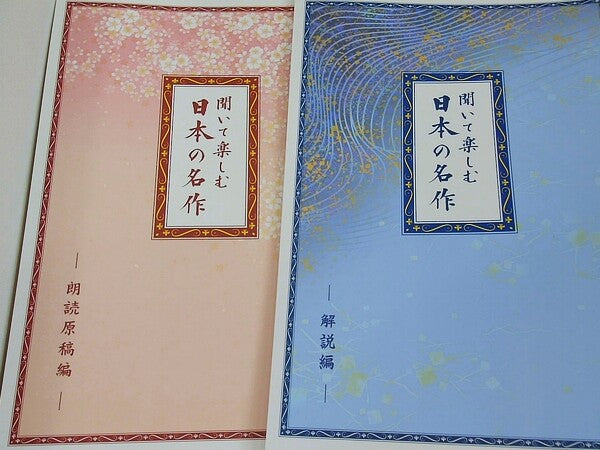 聞いて楽しむ
日本の名作
― 朗読原稿編 ―
聞いて楽しむ
日本の名作
― 解説編 ―